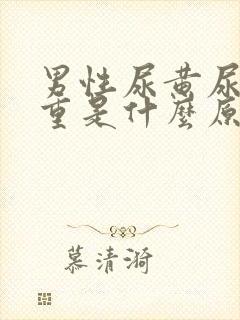 男性尿黄尿
重是什麼原
慕清漪